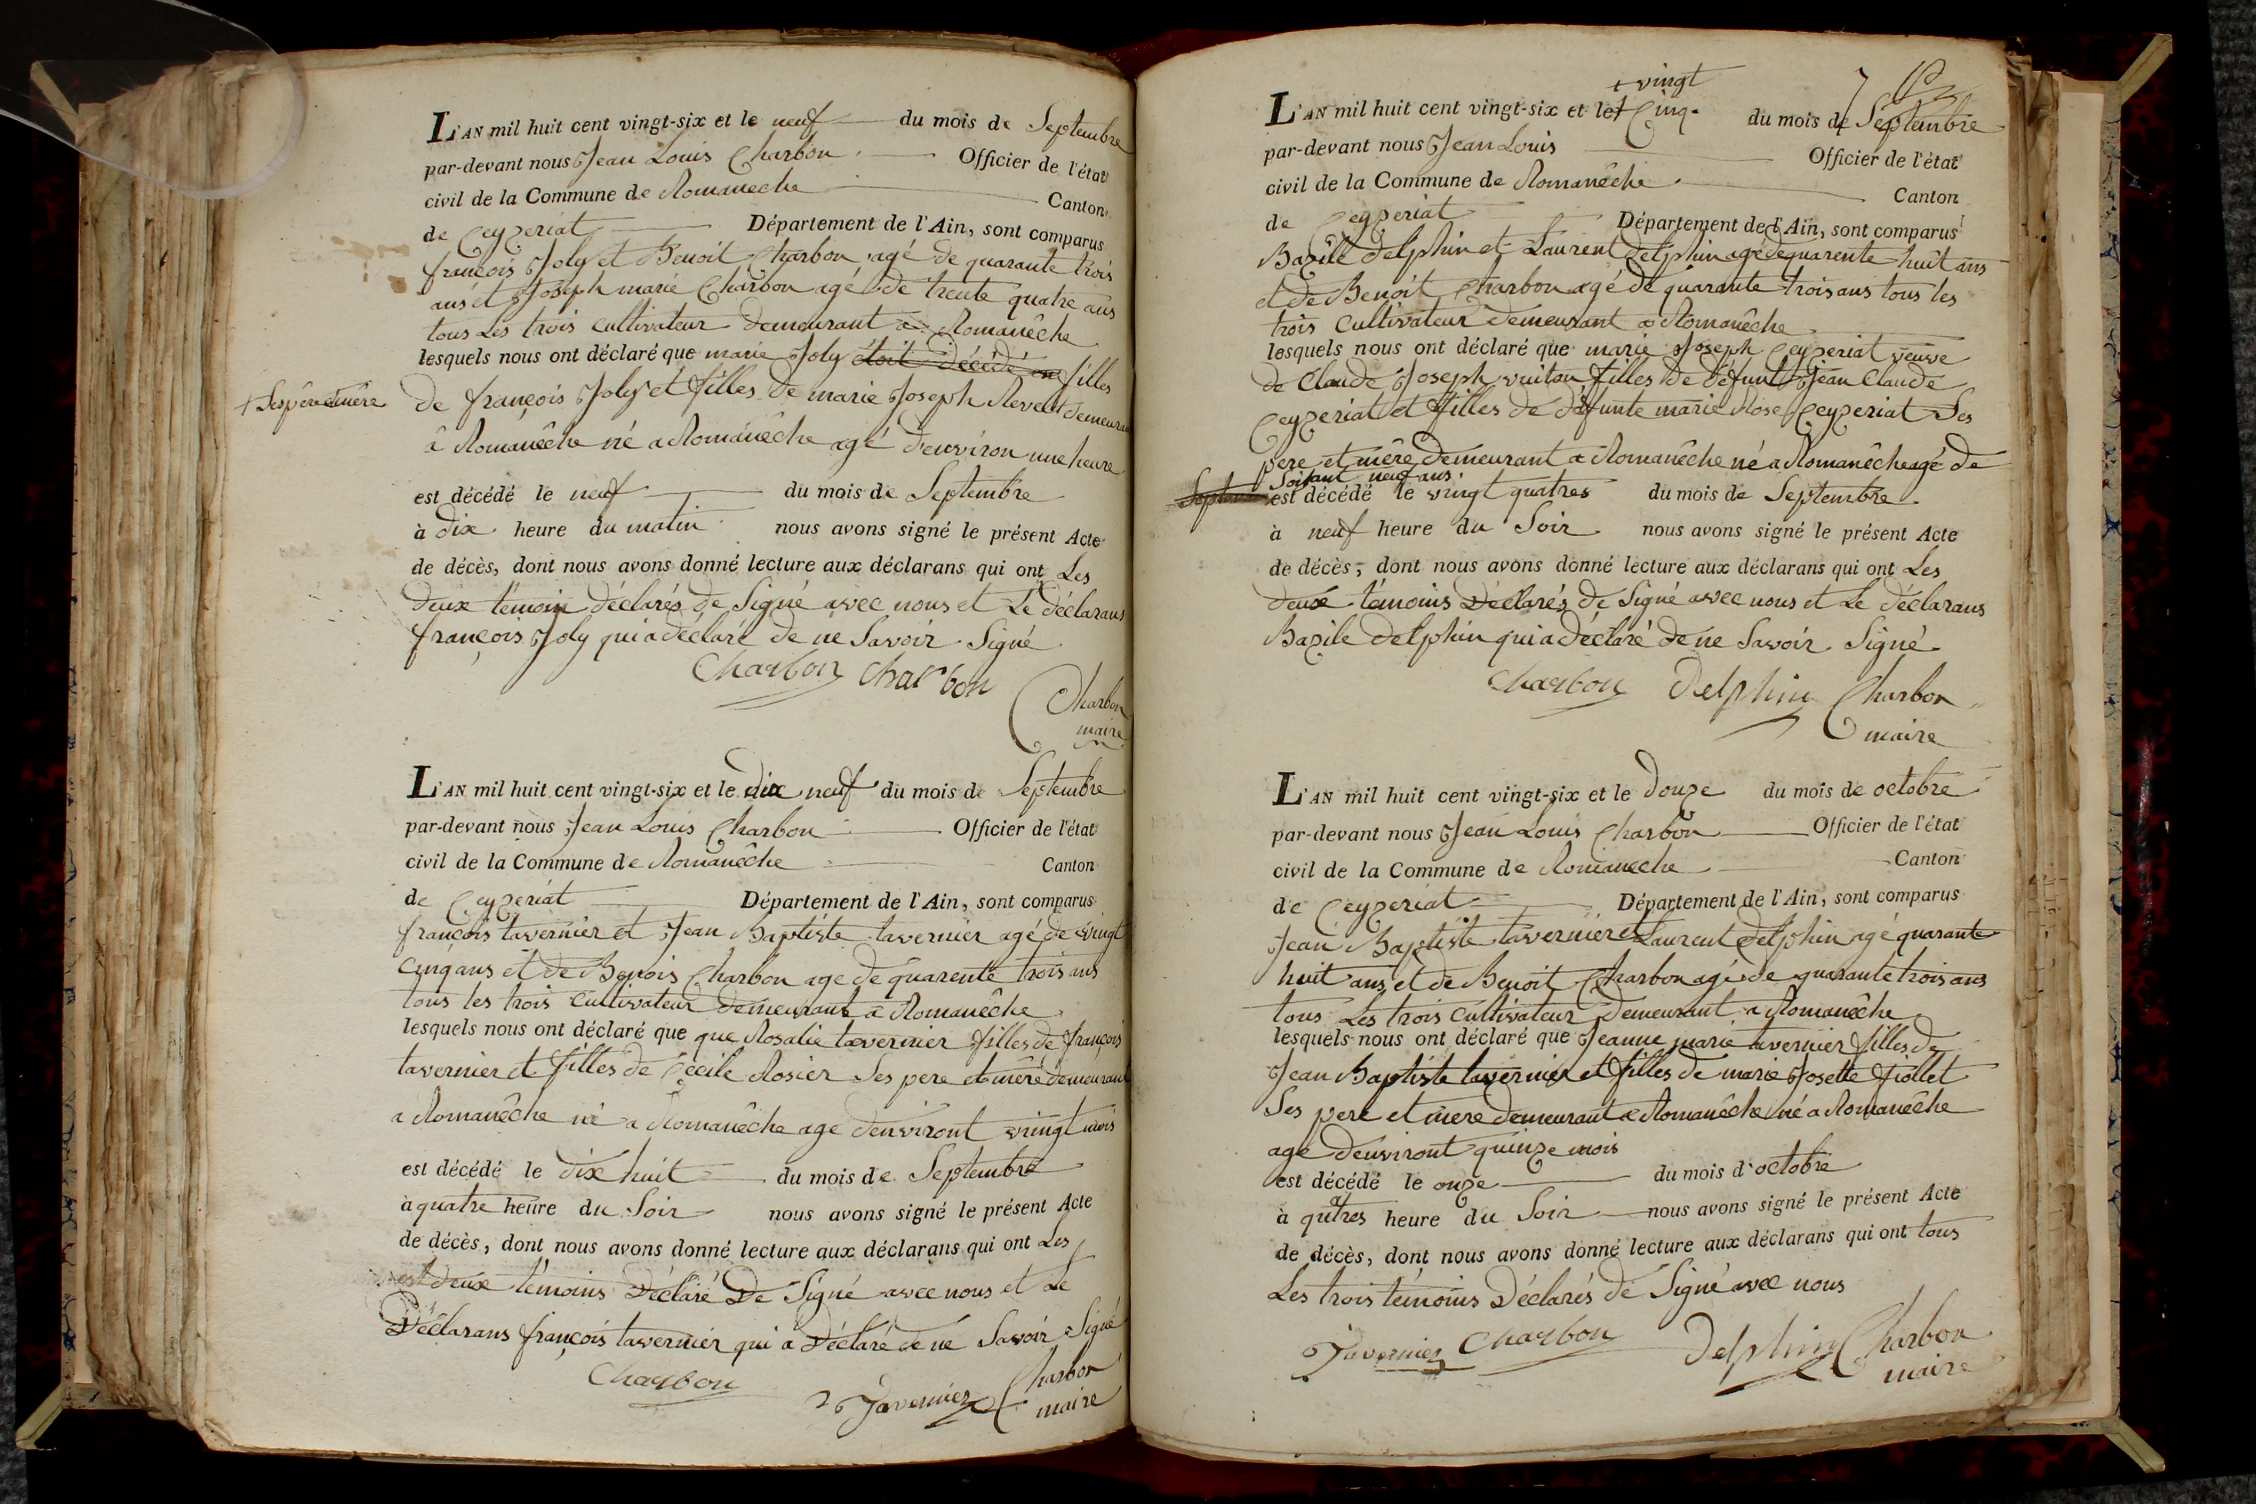 L'AN mil huit cent vingt-six et le neuf du mois de Septembre
par-devant nous Jean Louis Charbon Officier de l'état
civil de la Commune de Romanêche Canton
de Ceyzeriat Département de l'Ain, sont comparus
françois Joly et Benoit Charbon agé de quarante trois
ans et Joseph marie Charbon agé de trente quatre ans
tous Les trois cultivateur demeurant a Romanêche
lesquels nous ont déclaré que marie Joly étoit décédé en filles
+ Ses père et mère
de françois Joly + et filles de marie Joseph Revelt demeurant
à Romanêche né a Romanêche agé d'environ une heure
est décédé le neuf du mois de Septembre
à dix heure du matin nous avons signé le présent Acte
de décès, dont nous avons donné lecture aux déclarans qui ont Les
deux témoin déclarés de Signé avec nous et Le déclarans
françois Joly qui a déclaré de ne Savoir Signé
Charbon Charbon
Charbon
maire
L'AN mil huit cent vingt-six et le dix neuf du mois de Septembre
par-devant nous Jean Louis Charbon Officier de l'état
civil de la Commune de Romanêche Canton
de Ceyzeriat Département de l'Ain, sont comparus
françois tavernier et Jean Baptiste tavernier agé de vingt
cinq ans et de Benois Charbon age de quarente trois ans
tous les trois cultivateur demeurant a Romanêche
lesquels nous ont déclaré que que Rosalie tavernier filles de françois
tavernier et filles de Cécile Rosier Ses pere et mère demeurant
a Romanêche né a Romanêche age denviront vingt mois
est décédé le dix huit du mois de Septembre
à quatre heure du Soir nous avons signé le présent Acte
de décès, dont nous avons donné lecture aux déclarans qui ont Les
deux témoins Déclaré De Signé avec nous et Le
Déclarans françois tavernier qui a Déclaré de ne Savoir Signé
Charbon
Tavernier Charbon
maire
+ vingt
L'AN mil huit cent vingt-six et le + Cinq du mois de Septembre
par-devant nous Jean Louis Officier de l'état
civil de la Commune de Romanêche Canton
de Ceyzeriat Département de l'Ain, sont comparus
Bazile Delphin et Laurent Delphin agé de quarente huit ans
et de Benoit Charbon agé de quarante trois ans tous les
trois Cultivateur demeurant a Romanêche
lesquels nous ont déclaré que marie Joseph Ceyzeriat veuve
de Claude Joseph vuiton filles de défunt Jean Claude
Ceyzeriat et filles de défunte marie Rose Ceyzeriat Ses
pere et mère demeurant a Romanêche né a Romanêche agé de
Soixant neuf ans
est décédé le vingt quatres du mois de Septembre
à neuf heure du Soir nous avons signé le présent Acte
de décès, dont nous avons donné lecture aux déclarans qui ont Les
deux témoins Déclarés de Signé avec nous et Le déclarans
Bazile delphin qui a déclaré de ne Savoir Signé
Charbon Delphin Charbon
maire
L'AN mil huit cent vingt-six et le Douze du mois de octobre
par-devant nous Jean Louis Charbon Officier de l'état
civil de la Commune de Romaneche Canton
de Ceyzeriat Département de l'Ain, sont comparus
Jean Baptiste tavernier et Laurent Delphin agé quarante
huit ans et de Benoit Charbon agé de quarante trois ans
tous Les trois Cultivateur demeurant a Romanêche
lesquels nous ont déclaré que Jeanne marie tavernier filles de
Jean Baptiste tavernier et filles de marie Josette fiollet
Ses pere et mere demeurant a Romanêche né a Romanêche
agé denviront quinze mois
est décédé le onze du mois d'octobre
à quatres heure du Soir nous avons signé le présent Acte
de décès, dont nous avons donné lecture aux déclarans qui ont tous
Les trois témoins Déclarés de Signé avec nous
Tavernier Charbon Delphin Charbon
maire